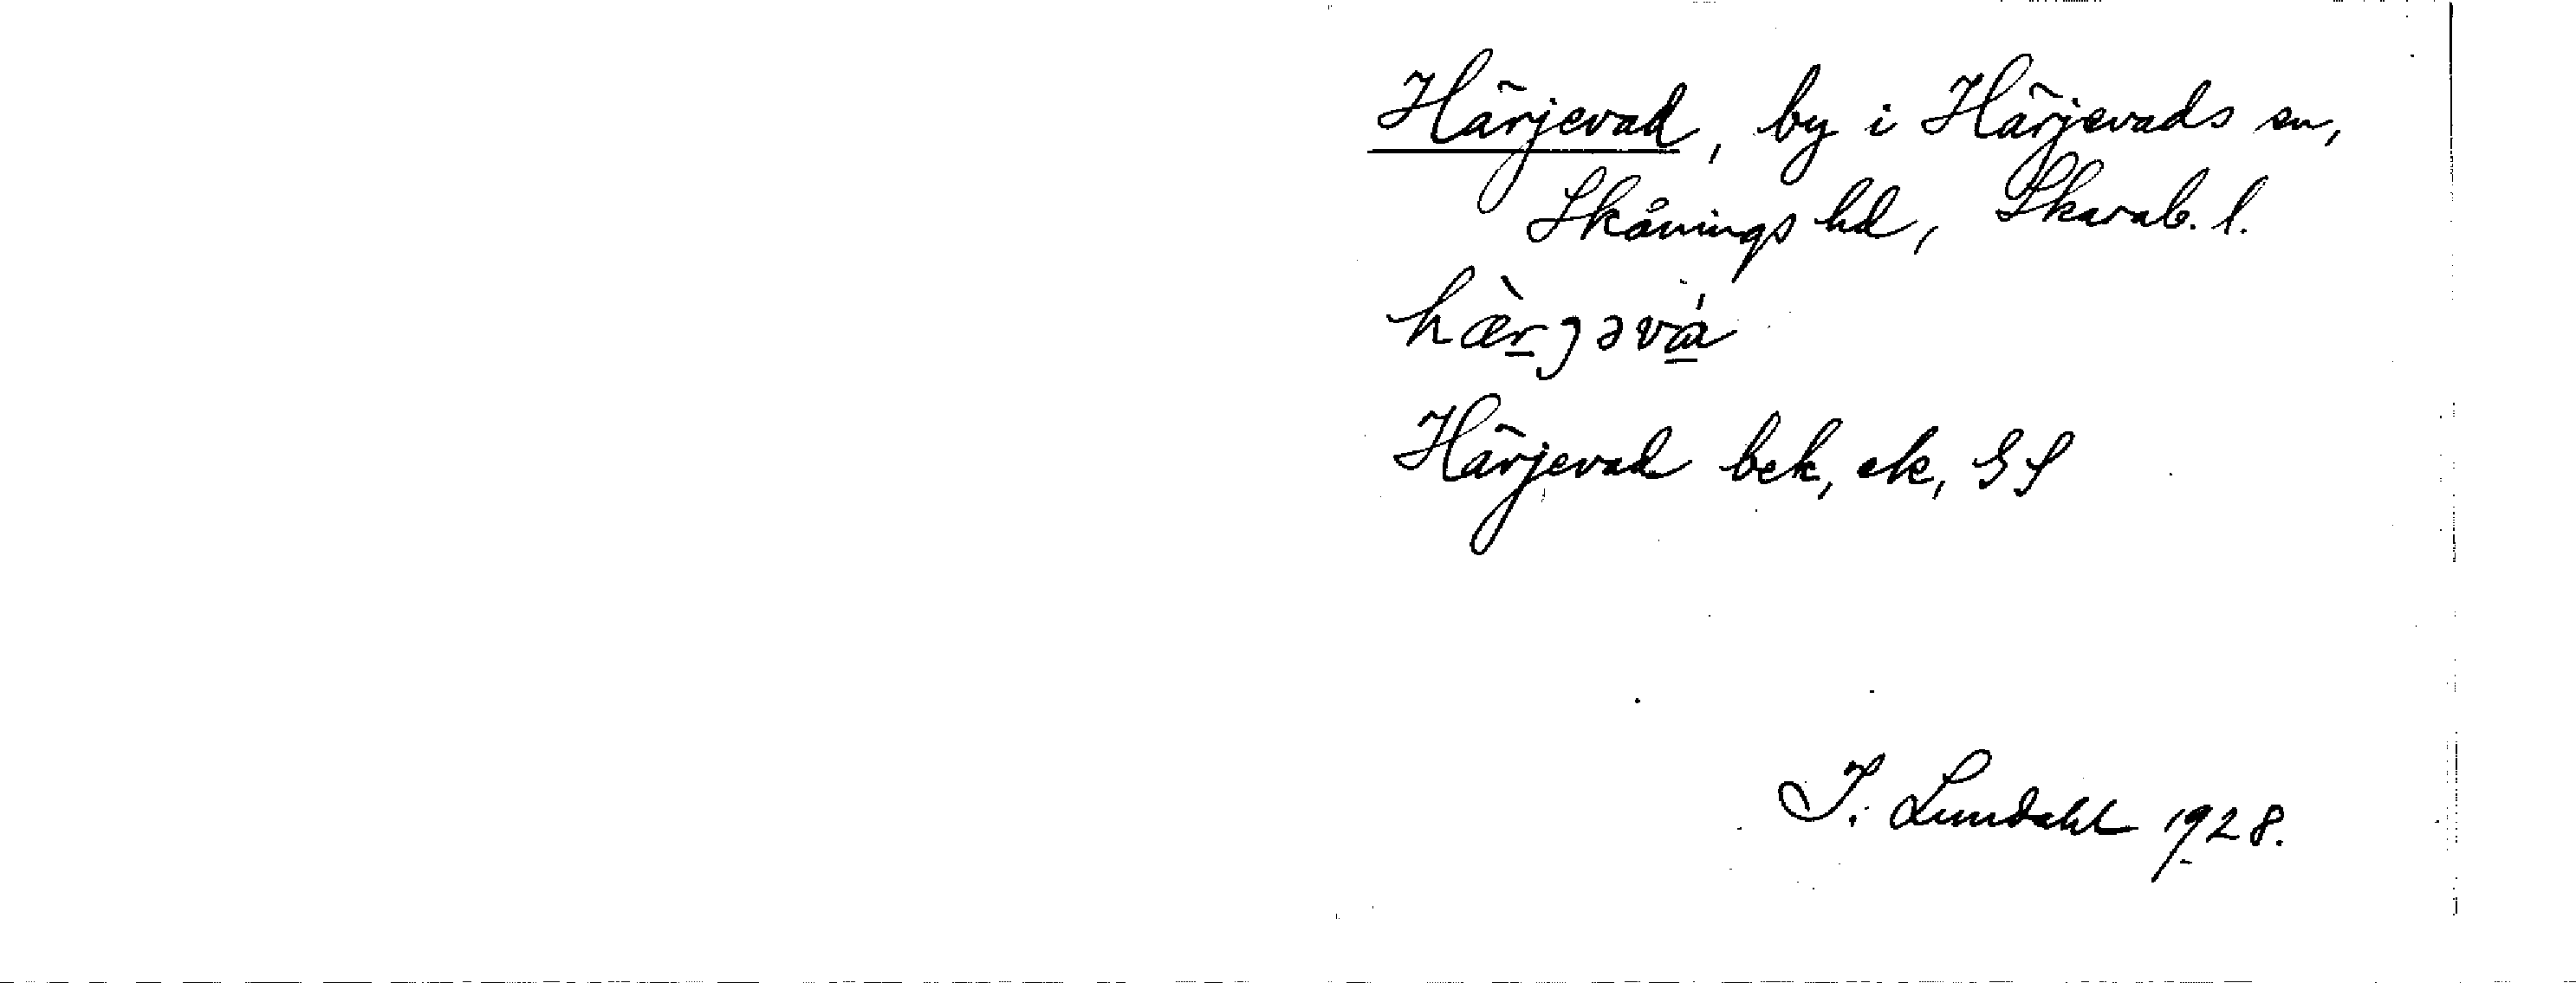 Härjevad, by i Härjevads sn,
Skånings hd, Skarab. l.
hæ̀r̲ȷəvá̲
Härjevad bek, ek, GS
I. Lundahl 1928.